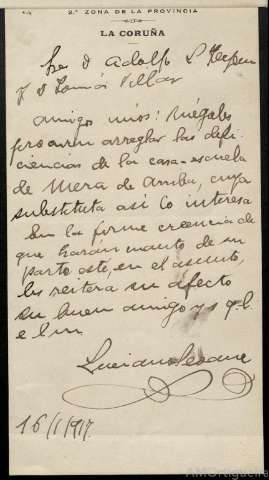 2.ª ZONA DE LA PROVINCIA
LA CORUÑA
Sres D Adolfo
y D Tomás Villar
Amigos mios: Ruégoles
procuren arreglar las defi
ciencias de la casa-escuela
de Mera de Arriba, cuya
substituta asi lo interesa
En la firme creencia de
que harán cuanto de su
parte esté, en el asunto,
les reitera su afecto
su buen amigo y s. q. b.
e l m.
Luciano Seoane
16/1/917.